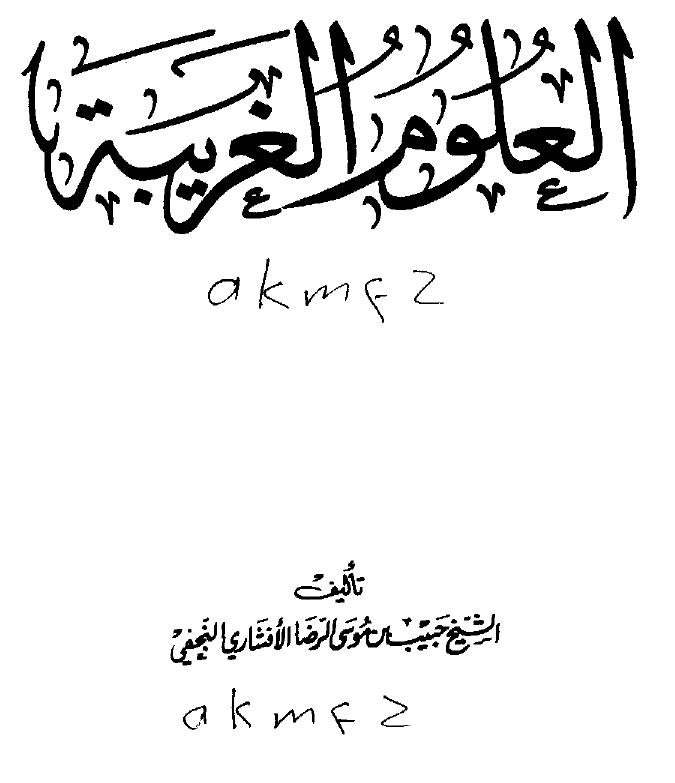 العلوم الغريبة
akmf2
تأليف
الشيخ حبيب بن موسى الرضا الأفشاري النجفي
akmf2